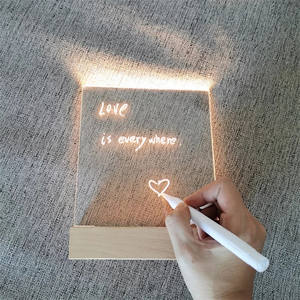 Love
is every where.